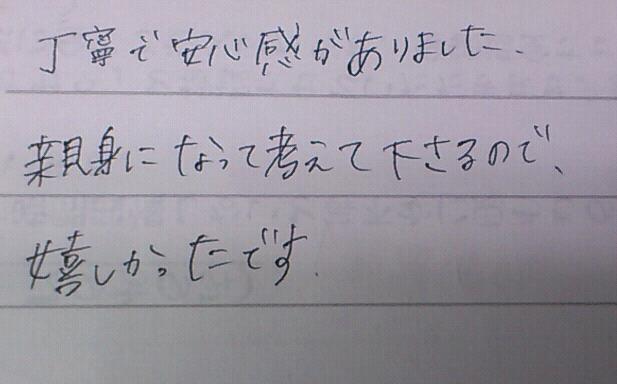 丁寧で安心感がありました.
親身になって考えて下さるので、
嬉しかったです.